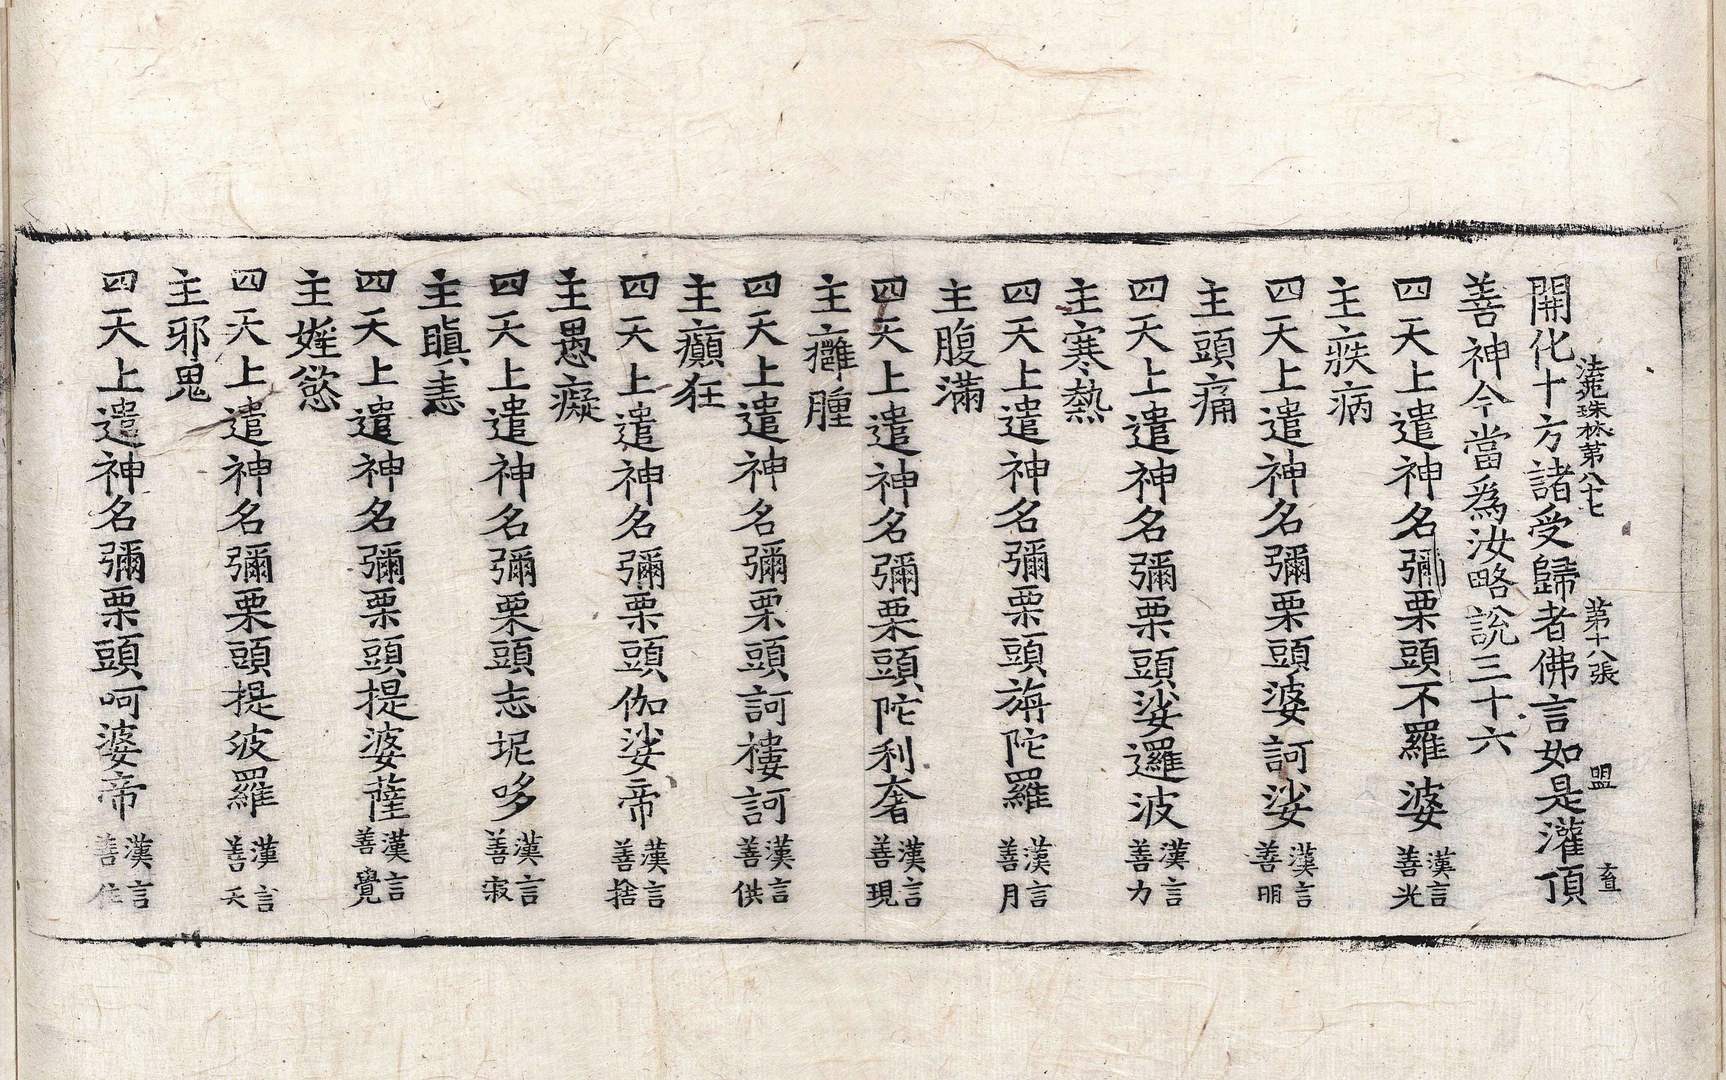 法苑珠林第八十七 第十八張 盟
開化十方諸受歸者佛言如是灌頂
善神今當爲汝略說三十六
四天上遣神名彌栗頭不羅婆漢言善光
主疾病
四天上遣神名彌栗頭婆訶娑漢言善明
主頭痛
四天上遣神名彌栗頭娑邏波漢言善力
主寒熱
四天上遣神名彌栗頭旃陀羅漢言善月
主腹滿
四天上遣神名彌栗頭陀利奢漢言善現
主癰腫
四天上遣神名彌栗頭訶樓訶漢言善供
主癲狂
四天上遣神名彌栗頭伽娑帝漢言善捨
主愚癡
四天上遣神名彌栗頭志坭哆漢言善寂
主瞋恚
四天上遣神名彌栗頭提婆薩漢言善覺
主婬慾
四天上遣神名彌栗頭提波羅漢言善天
主邪鬼
四天上遣神名彌栗頭呵婆帝漢言善住